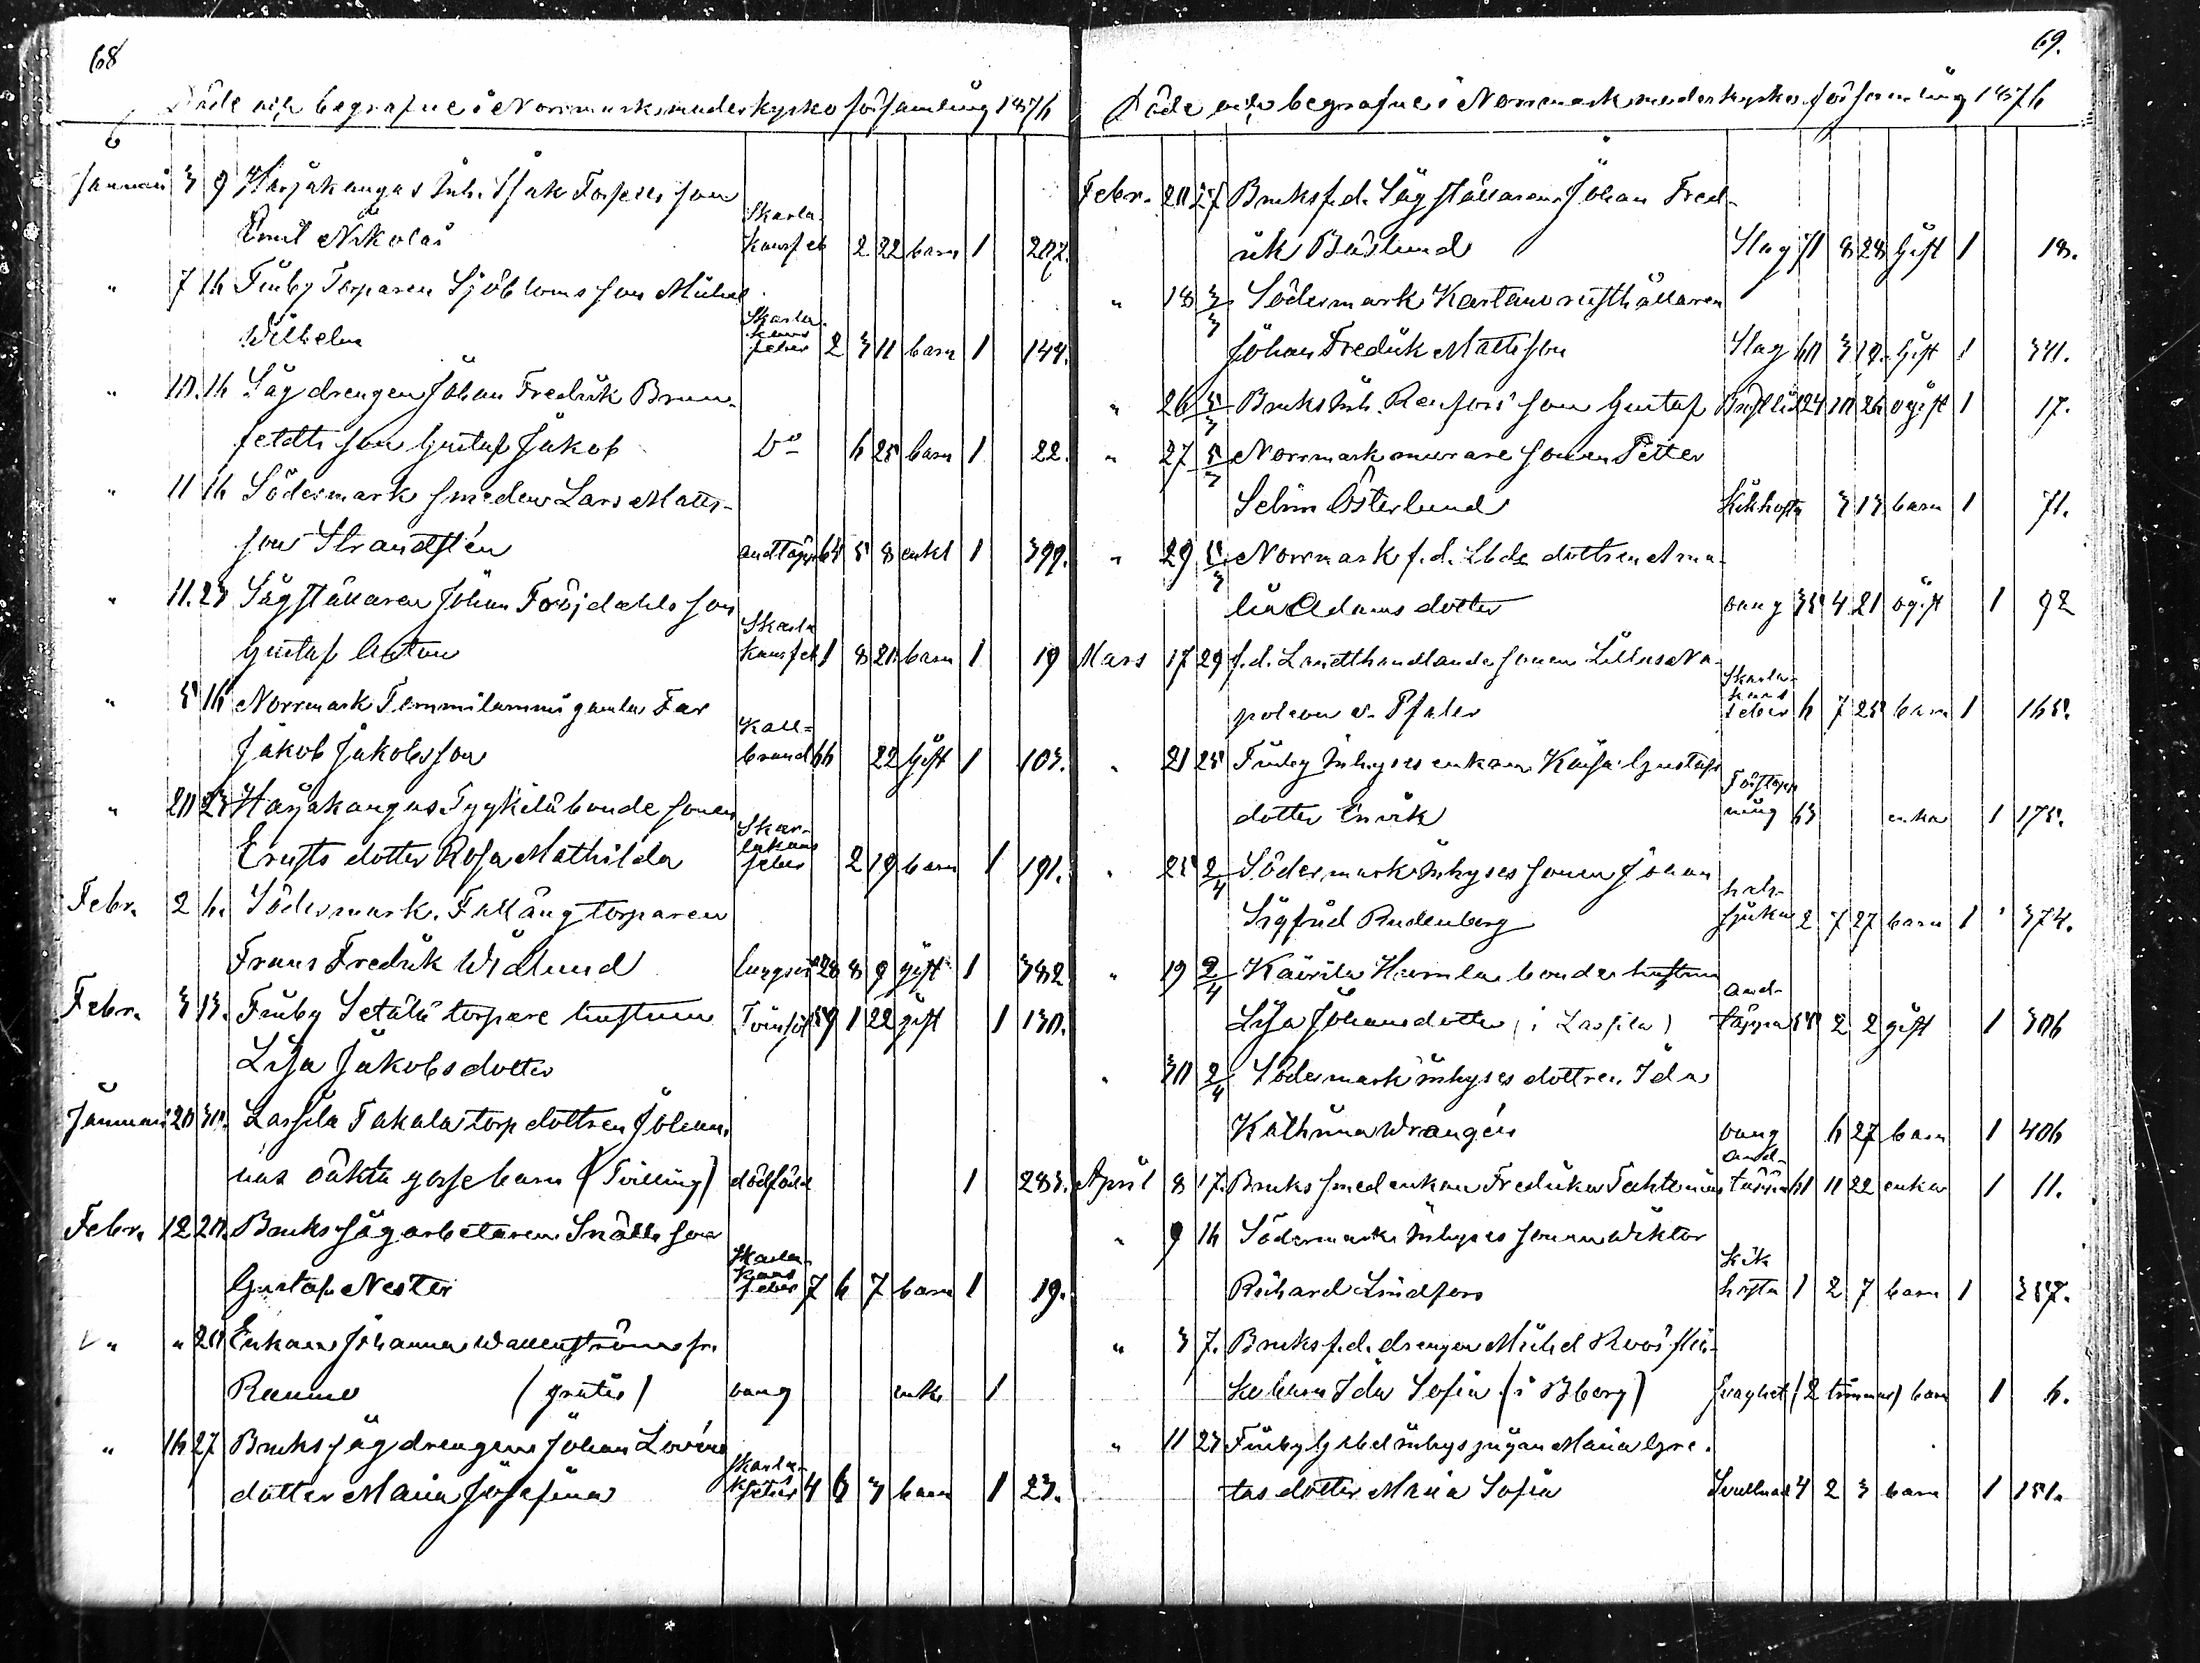 68
Döde och begrafne i Norrmarks moderkyrko församling 1876
Januari 3 9 Harjakangas Inh. Isak Forsells son
Emil Nikolai Skarla-kansfeb 2 22 barn 1 202.
" 7 16 Finby Torparen Sjöbloms son Mikael
Wilhelm Skarla-kansfeber 2 3 11 barn 1 144.
" 10. 16 Sågdrengen Johan Fredrik Brun-
feldts son Gustaf Jakob Do 6 25 barn 1 22.
" 11 16 Södermark smeden Lars Matts-
son Strandstén andtäppa 64 5 8 enkl 1 399.
" 11. 23 Sågställaren Johan Fröjdahls son
Gustaf Anton Skarla kansfeb 1 8 21 barn 1 19
" 5 16 Norrmark Temmilammi gamla Far
Jakob Jakobsson Kall-brand 66 22 Gift 1 103.
" 20 23 Harjakangas Tyykilä bondesonen
Ernsts dotter Rosa Mathilda Skar-lakans feber 2 19 barn 1 191.
Febr. 2 6. Södermark. Fallängtorparen
Frans Fredrik Widlund lungsot 28 8 9 gift 1 382
Febr. 3 13. Finby Setälä torpare hustrun Tvinsot 59 1 22 gift 1 130.
Lisa Jakobsdotter
Januari 20 30. Lassila Takala torp dottren Johan-
nas oäkta gossebarn (Tvilling) dödfödd 1 283.
Febr. 12 20. Bruks sågarbetaren Snälls son
Gustaf Nestor Skarla-kans feber 7 6 7 barn 1 19.
" " 20 Enkan Johanna Wallenströms fr.
Raumo (gratis) bang enka 1
" 16 27 Bruks sågdrengens Johan Lovéns
dotter Maria Josefina Skarla-k feber 4 6 3 barn 1 23.
69.
Döde och begrafne i Norrmark moderkyrko församling 1876
Febr. 20 27 Bruks f.d. Sågställaren Johan Fred-
rik Bäslund Slag 71 8 28 Gift 1 18.
" 18 3/3 Södermark Kartano rusthållaren
Johan Fredrik Mattsson Slag 60 3 19 Gift 1 341.
" 26 5/3 Bruks Inh. Renfors' son Gustaf Bröstlid 24 10 26 ogift 1 17.
" 27 5/3 Norrmark murare sonen Petter
Selim Österlund Kikhosta 3 13 barn 1 71.
" 29 5/3 Norrmark f.d. Lbde dottren Ama-
lia Adamsdotter bang 35 4 21 ogift 1 92
Mars 17 29 f.d. Landthandlande sonen Lillus Na-
poleon v. Pfaler Skarla-kans feber 6 7 25 barn 1 165.
" 21 25 Finby Inhyses enkan Kajsa Gustafs
dotter Envik Förstopp-ning 63 enka 1 175.
" 25 2/4 Södermark Inhyses sonen Johan
Sigfrid Rudenberg hals-sjuka 2 7 27 barn 1 374.
" 19 2/4 Kairila Harnla bondes hustrun
Lisa Johansdotter (i Lassila) And-täppa 55 2 2 gift 1 306
" 30 2/4 Södermark inhyses dottren Ida
Kathrina Wrangén bang 6 27 barn 1 406
April 8 17. Bruks smedenkan Fredrika Tahtinen And-täppa 61 11 22 enka 1 11.
" 9 16 Södermark Inhyses sonen Wiktor
Richard Lindfors Kik hosta 1 2 7 barn 1 357.
" 3 7. Bruks f.d. drengen Mickel Roos' flic-
kebarn Ida Sofia (i Bborg) svaghet (2 timmar) barn 1 6.
" 11 23 Finby Gåbel inhys pigan Maria Gre-
tas dotter Maria Sofia Svullnad 4 2 3 barn 1 151.